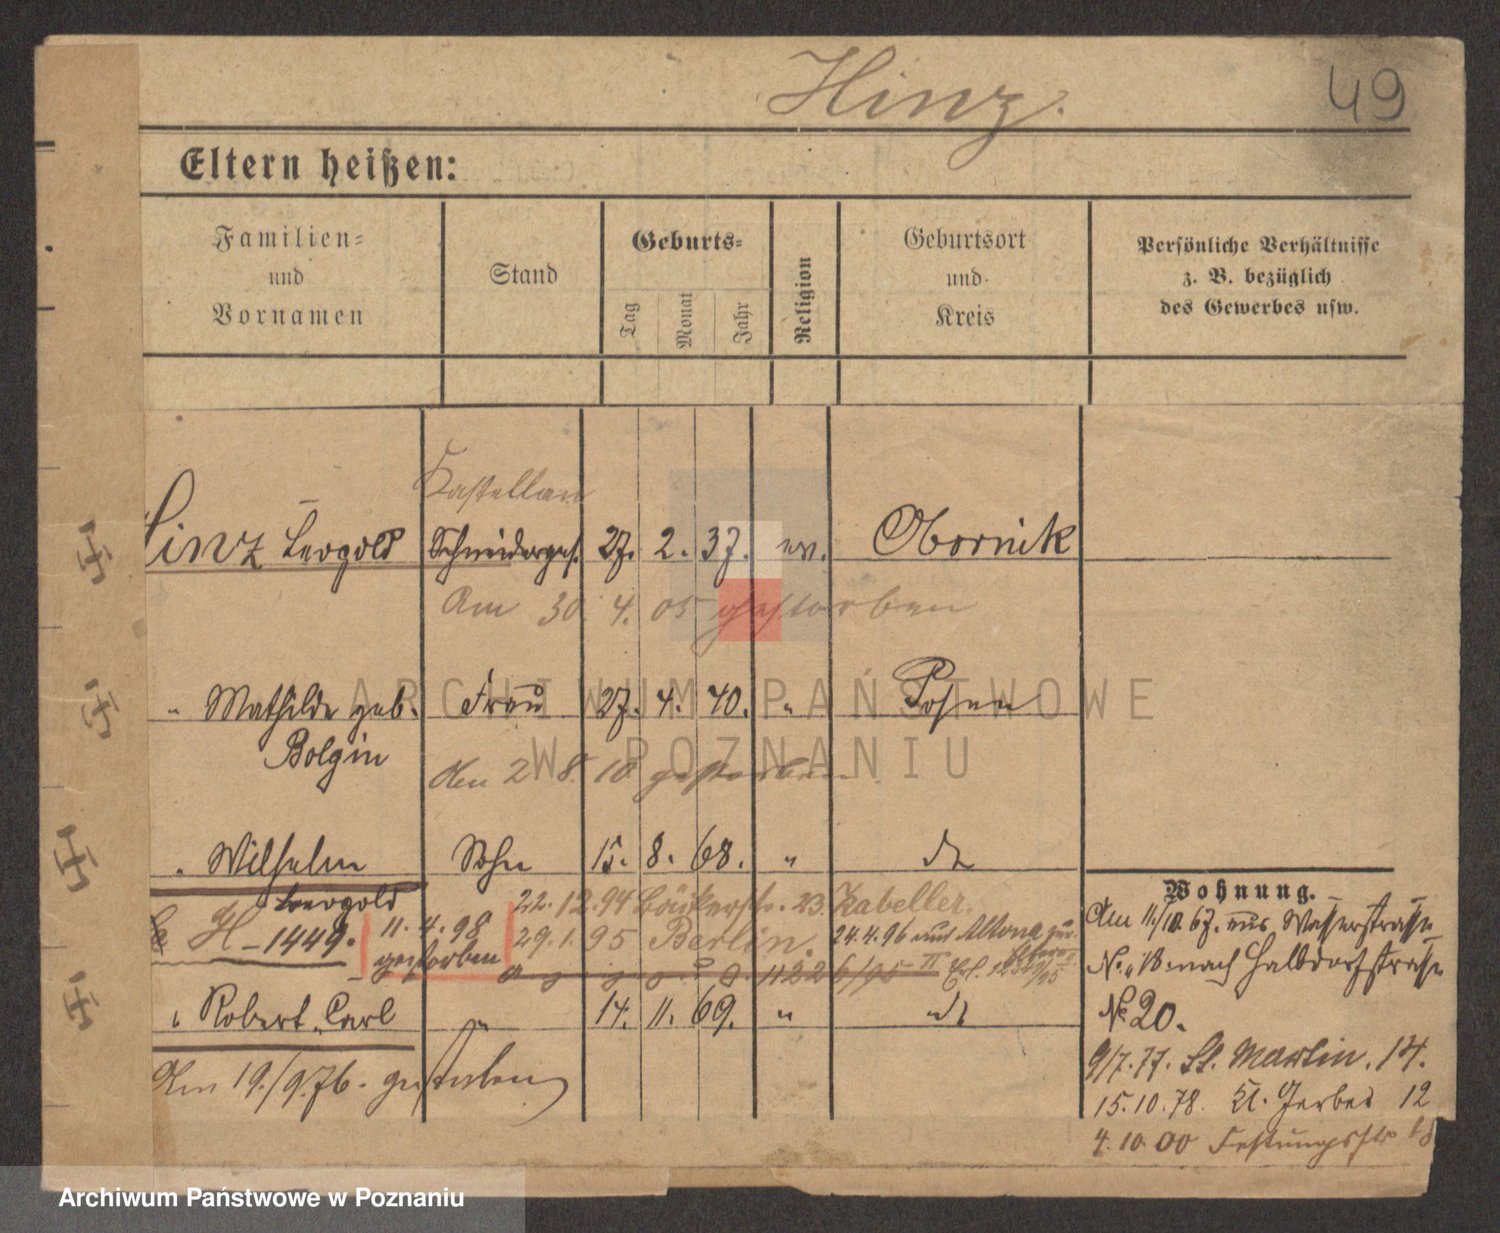 Hinz.
49
Eltern heißen:
Familien-
und
Vornamen
Stand
Geburts-
Tag
Monat
Jahr
Religion
Geburtsort
und
Kreis
Persönliche Verhältnisse
z. B. bezüglich
des Gewerbes usw.
Kastellan
Hinz Leopold Schneiderges. 27. 2. 37. ev. Obornik
Am 30. 4. 05 gestorben
" Mathilde geb. Frau 27. 4. 40. " Posen
Bolgin
den 2 8. 10 gestorben
" Wilhelm Sohn 15. 8. 68. " do
Leopold
22. 12. 94 Bäckerstr. 23. Zabeller.
H-1449.
11. 4. 98
gestorben
29. 1. 95 Berlin.
24.4.96 aus Altona zur.
Robert Carl " 14. 11. 69. " do
Am 19./9. 76. gestorben
Wohnung.
Am 11./10. 67. aus Wasserstrasse
No. 18 nach Halbdorfstrasse
No 20.
9/7. 77. St. Martin. 14.
15. 10. 78. Kl. Gerber 12
4. 10. 00 Festungsstr
ARCHIWUM PAŃSTWOWE
W POZNANIU
Archiwum Państwowe w Poznaniu